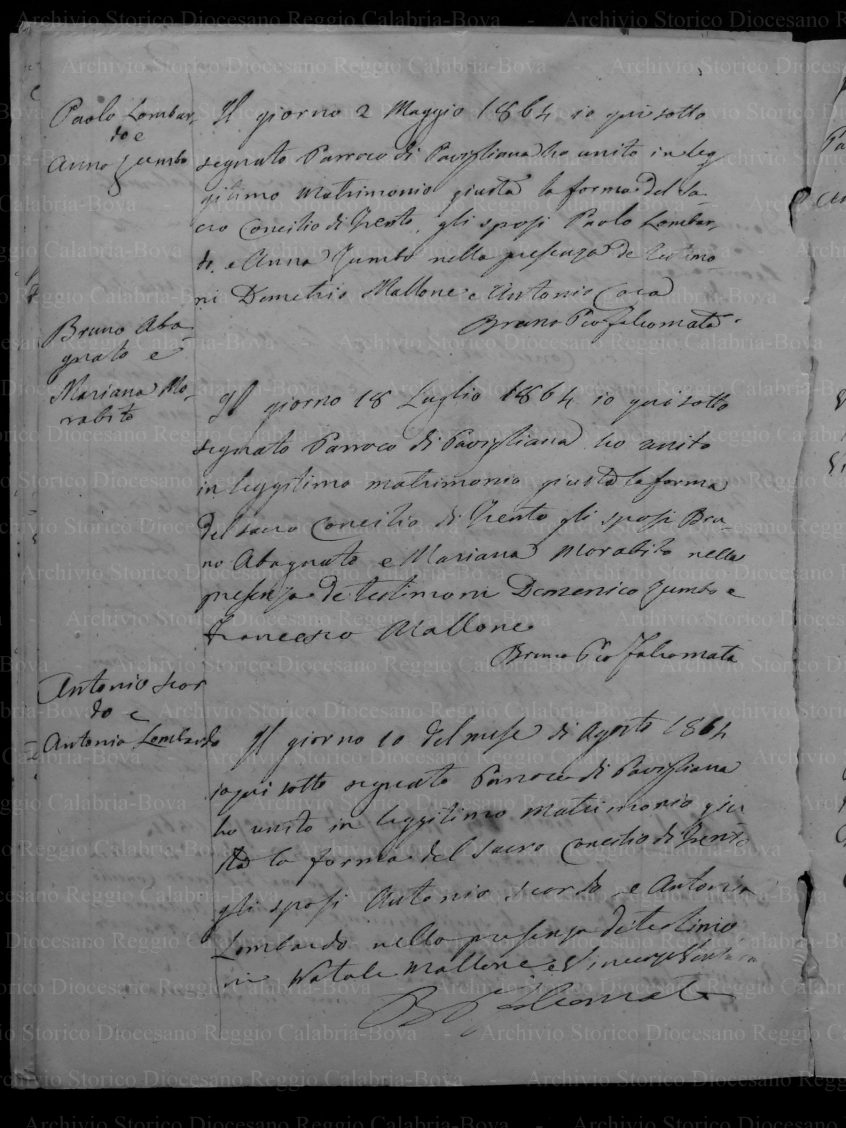 Paolo Lombar-
do e
Anna Jumbo
Il giorno 2 Maggio 1864 io qui sotto
segnato Parroco di Pavigliana ho unito in leg
gitimo matrimonio giusta la forma del Sa-
cro Concilio di Trento, gli sposi Paolo Lombar-
do, e Anna Jumbo nella presenza de testimo-
ni Demetrio Mallone e Antonio
Bruno Pio Falcomatà
Bruno Aba-
gnato e
Mariana Mo-
rabito
Il giorno 18 Luglio 1864 io qui sotto
segnato Parroco di Pavigliana ho unito
in leggitimo matrimonio giusta la forma
del sacro Concilio di Trento gli sposi Bru-
no Abagnato e Mariana Morabito nella
presenza de testimoni Domenico Jumbo e
Francesco Mallone
Bruno Pio Falcomatà
Antonio Scor
do e
Antonia Lombardo
Il giorno 10 del mese di Agosto 1864
io qui sotto segnato Parroco di Pavigliana
ho unito in leggitimo matrimonio giu
sta la forma del Sacro Concilio di Trento
gli sposi Antonio Scordo e Antonia
Lombardo nella presenza di testimo
ni Natale Mallone e
B Falcomatà
Archivio Storico Diocesano Reggio Calabria-Bova